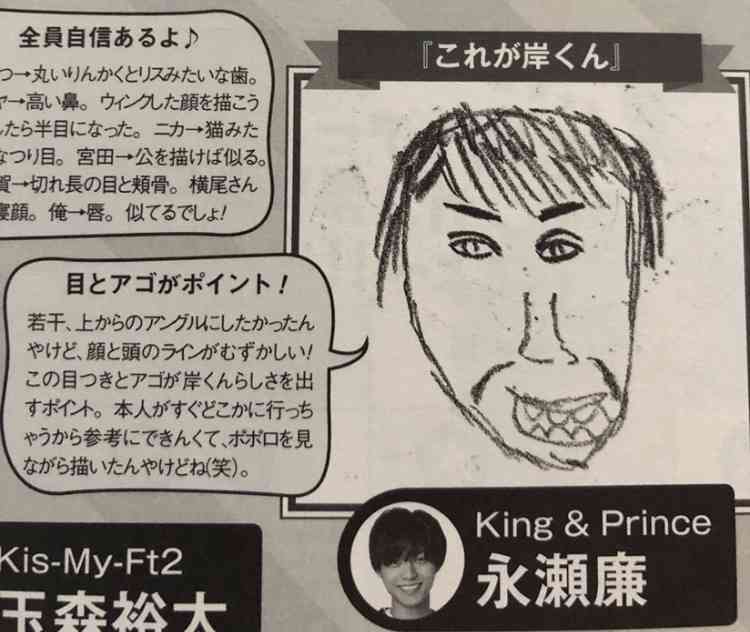 全員自信あるよ♪
つ→丸いりんかくとリスみたいな歯。
ヤ→高い鼻。ウィンクした顔を描こう
したら半目になった。ニカ→猫みた
なつり目。宮田→公を描けば似る。
賀→切れ長の目と頬骨。横尾さん
寝顔。俺→唇。似てるでしょ!
『これが岸くん』
目とアゴがポイント!
若干、上からのアングルにしたかったん
やけど、顔と頭のラインがむずかしい!
この目つきとアゴが岸くんらしさを出
すポイント。本人がすぐどこかに行っち
ゃうから参考にできんくて、ポポロを見
ながら描いたんやけどね(笑)。
King & Prince
永瀬廉
Kis-My-Ft2
玉森裕太